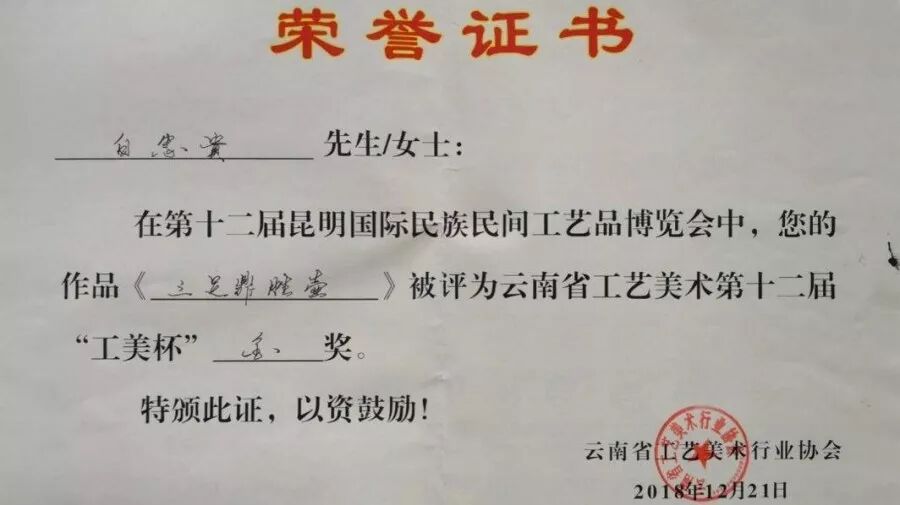 荣誉证书
先生/女士：
在第十二届昆明国际民族民间工艺品博览会中，您的
作品《三足鼎 壶》被评为云南省工艺美术第十二届
“工美杯” 金 奖。
特颁此证，以资鼓励！
云南省工艺美术行业协会
云南省工艺美术行业协会
2018年12月21日